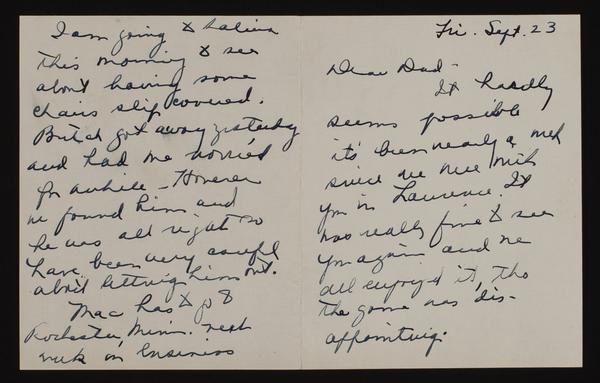 Fri. Sept. 23
Dear Dad -
It hardly
seems possible
it's been nearly a week
since we were with
you in Lawrence. It
was really fine to see
you again and we
all enjoyed it, tho
the game was dis-
appointing.
I am going to Salina
this morning to see
about having some
chairs slip covered.
Butch got away yesterday
and had me worried
for awhile - However
we found him and
he was all right so
have been very careful
about letting him out.
Mac has to go to
Rochester, Minn. next
week on business